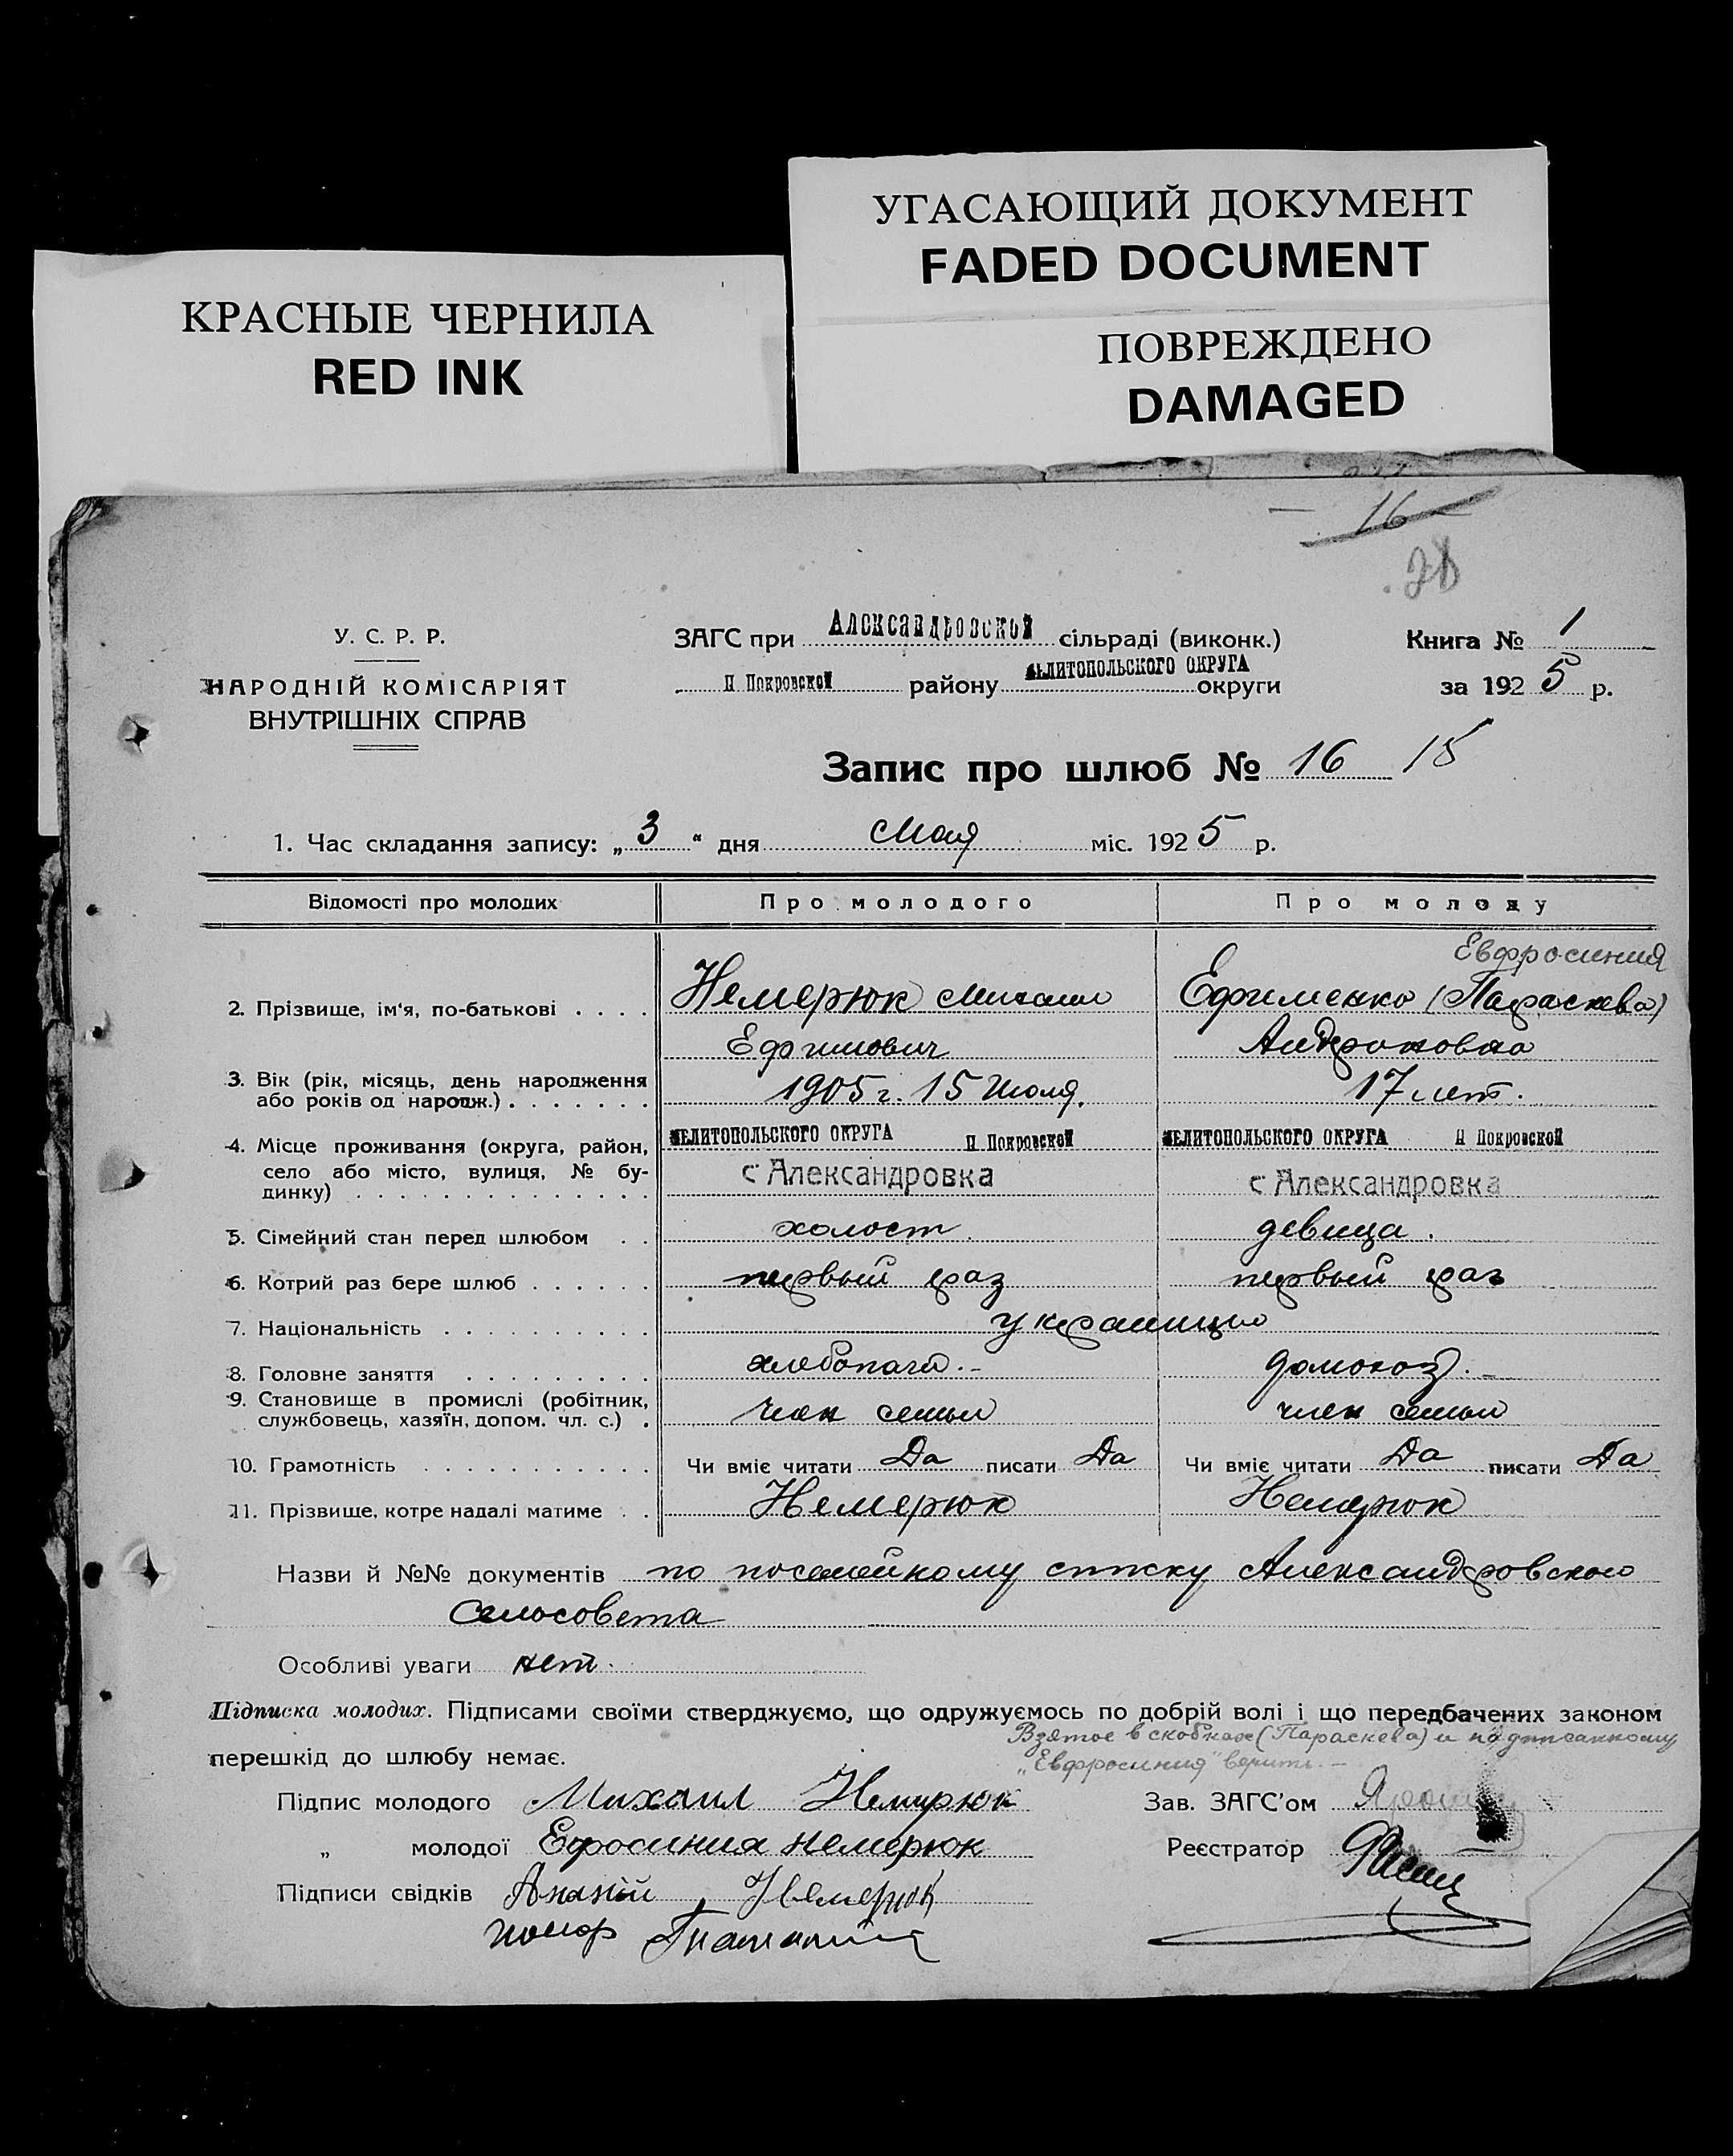 УГАСАЮЩИЙ ДОКУМЕНТ
FADED DOCUMENT
ПОВРЕЖДЕНО
DAMAGED
КРАСНЫЕ ЧЕРНИЛА
RED INK
— 16 —
У. С. Р. Р.
НАРОДНІЙ КОМІСАРІЯТ
ВНУТРІШНІХ СПРАВ
ЗАГС при Александровской сільраді (виконк.)
Н Покровской району МЕЛИТОПОЛЬСКОГО ОКРУГА округи
Книга № 1
за 1925 р.
Запис про шлюб № 16 15
1. Час складання запису: „3“ дня Мая міс. 1925 р.
Відомості про молодих Про молодого Про молоду
Евфросиния
2. Прізвище, ім‘я, по-батькові . . . . Немерюк Михаил Ефименко (Параскева)
Ефимович Андроновна
3. Вік (рік, місяць, день народження або років од народж.) . . . . . . . 1905 г. 15 Июля. 17 лет.
4. Місце проживання (округа, район, село або місто, вулиця, № будинку) . . . . . . . . . . . . . . МЕЛИТОПОЛЬСКОГО ОКРУГА Н Покровской МЕЛИТОПОЛЬСКОГО ОКРУГА Н Покровской
с Александровка с Александровка
5. Сімейний стан перед шлюбом . . холост. девица.
6. Котрий раз бере шлюб . . . . . . первый раз первый раз
7. Національність . . . . . . . . . . украинцы
8. Головне заняття . . . . . . . . . хлебопаш.- домохоз.-
9. Становище в промислі (робітник, службовець, хазяїн, допом. чл. с.) . член семьи член семьи
10. Грамотність . . . . . . . . . . . Чи вміє читати Да писати Да Чи вміє читати Да писати Да
11. Прізвище, котре надалі матиме . . Немерюк Немерюк
Назви й №№ документів по посемейному списку Александровского
Сельсовета
Особливі уваги нет.
Підписка молодих. Підписами своїми стверджуємо, що одружуємось по добрій волі і що передбачених законом
перешкід до шлюбу немає.
Взятое в скобках (Параскева) и надписанному
„Евфросиния" верить. —
Підпис молодого Михаил Немирюк
„ молодої Ефросиния Немерюк
Підписи свідків Ананій Немерюк
Зав. ЗАГС’ом
Реєстратор